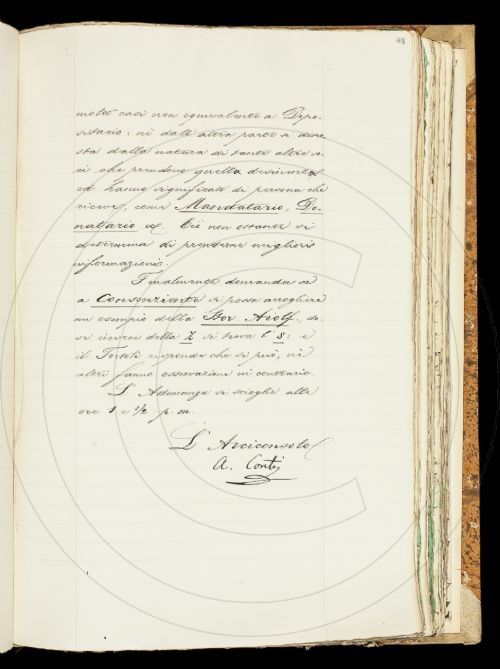 molti casi non equivalente a Depo-
sitario; nè dall' altra parte si disco-
sta dalla natura di tante altre vo-
ci, che prendono quella desinenza
ed hanno significato di persona che
riceve, come Mandatario, Do-
natario &. Ciò non ostante si
determina di prenderne migliori
informazioni.
Finalmente domanda se
a Consenziente si possa accogliere
un esempio dello Stor. Aiolf., do-
ve invece della Z si trova l' S: e
il Tortoli risponde che si può, nè
altri fanno osservazione in contrario.
L' Adunanza si scioglie alle
ore 1 e 1/2 p. m.
L' Arciconsolo
A. Conti